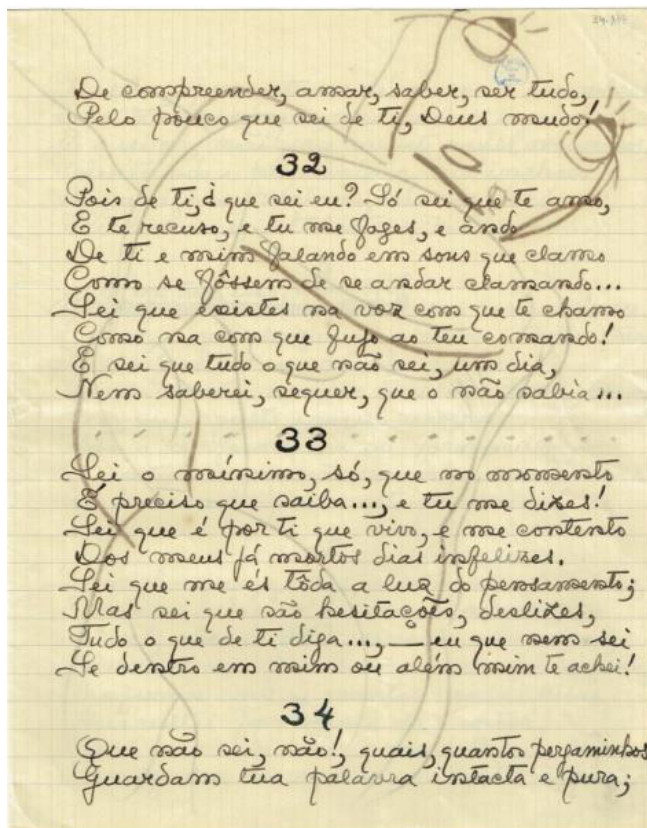 De compreender, amar, saber, ser tudo,
Pelo pouco que sei de ti, Deus mudo!
32
Pois de ti, que sei eu? Só sei que te amo,
E te recuso, e tu me foges, e ando
De ti e mim falando em sons que clamo
Como se fôssem de se andar clamando...
Sei que existes na voz com que te chamo
Como na com que fujo ao teu comando!
E sei que tudo o que não sei, um dia,
Nem saberei, sequer, que o não sabia...
33
Sei o mínimo, só, que no momento
É preciso que saiba..., e tu me dizes!
Sei que é por ti que vivo, e me contento
Dos meus já mortos dias infelizes.
Sei que me és tôda a luz do pensamento;
Mas sei que são hesitações, deslizes,
Tudo o que de ti diga..., — eu que nem sei
Se dentro em mim ou além mim te achei!
34
Que não sei, não!, quais, quantos pergaminhos
Guardam tua palavra intacta e pura;